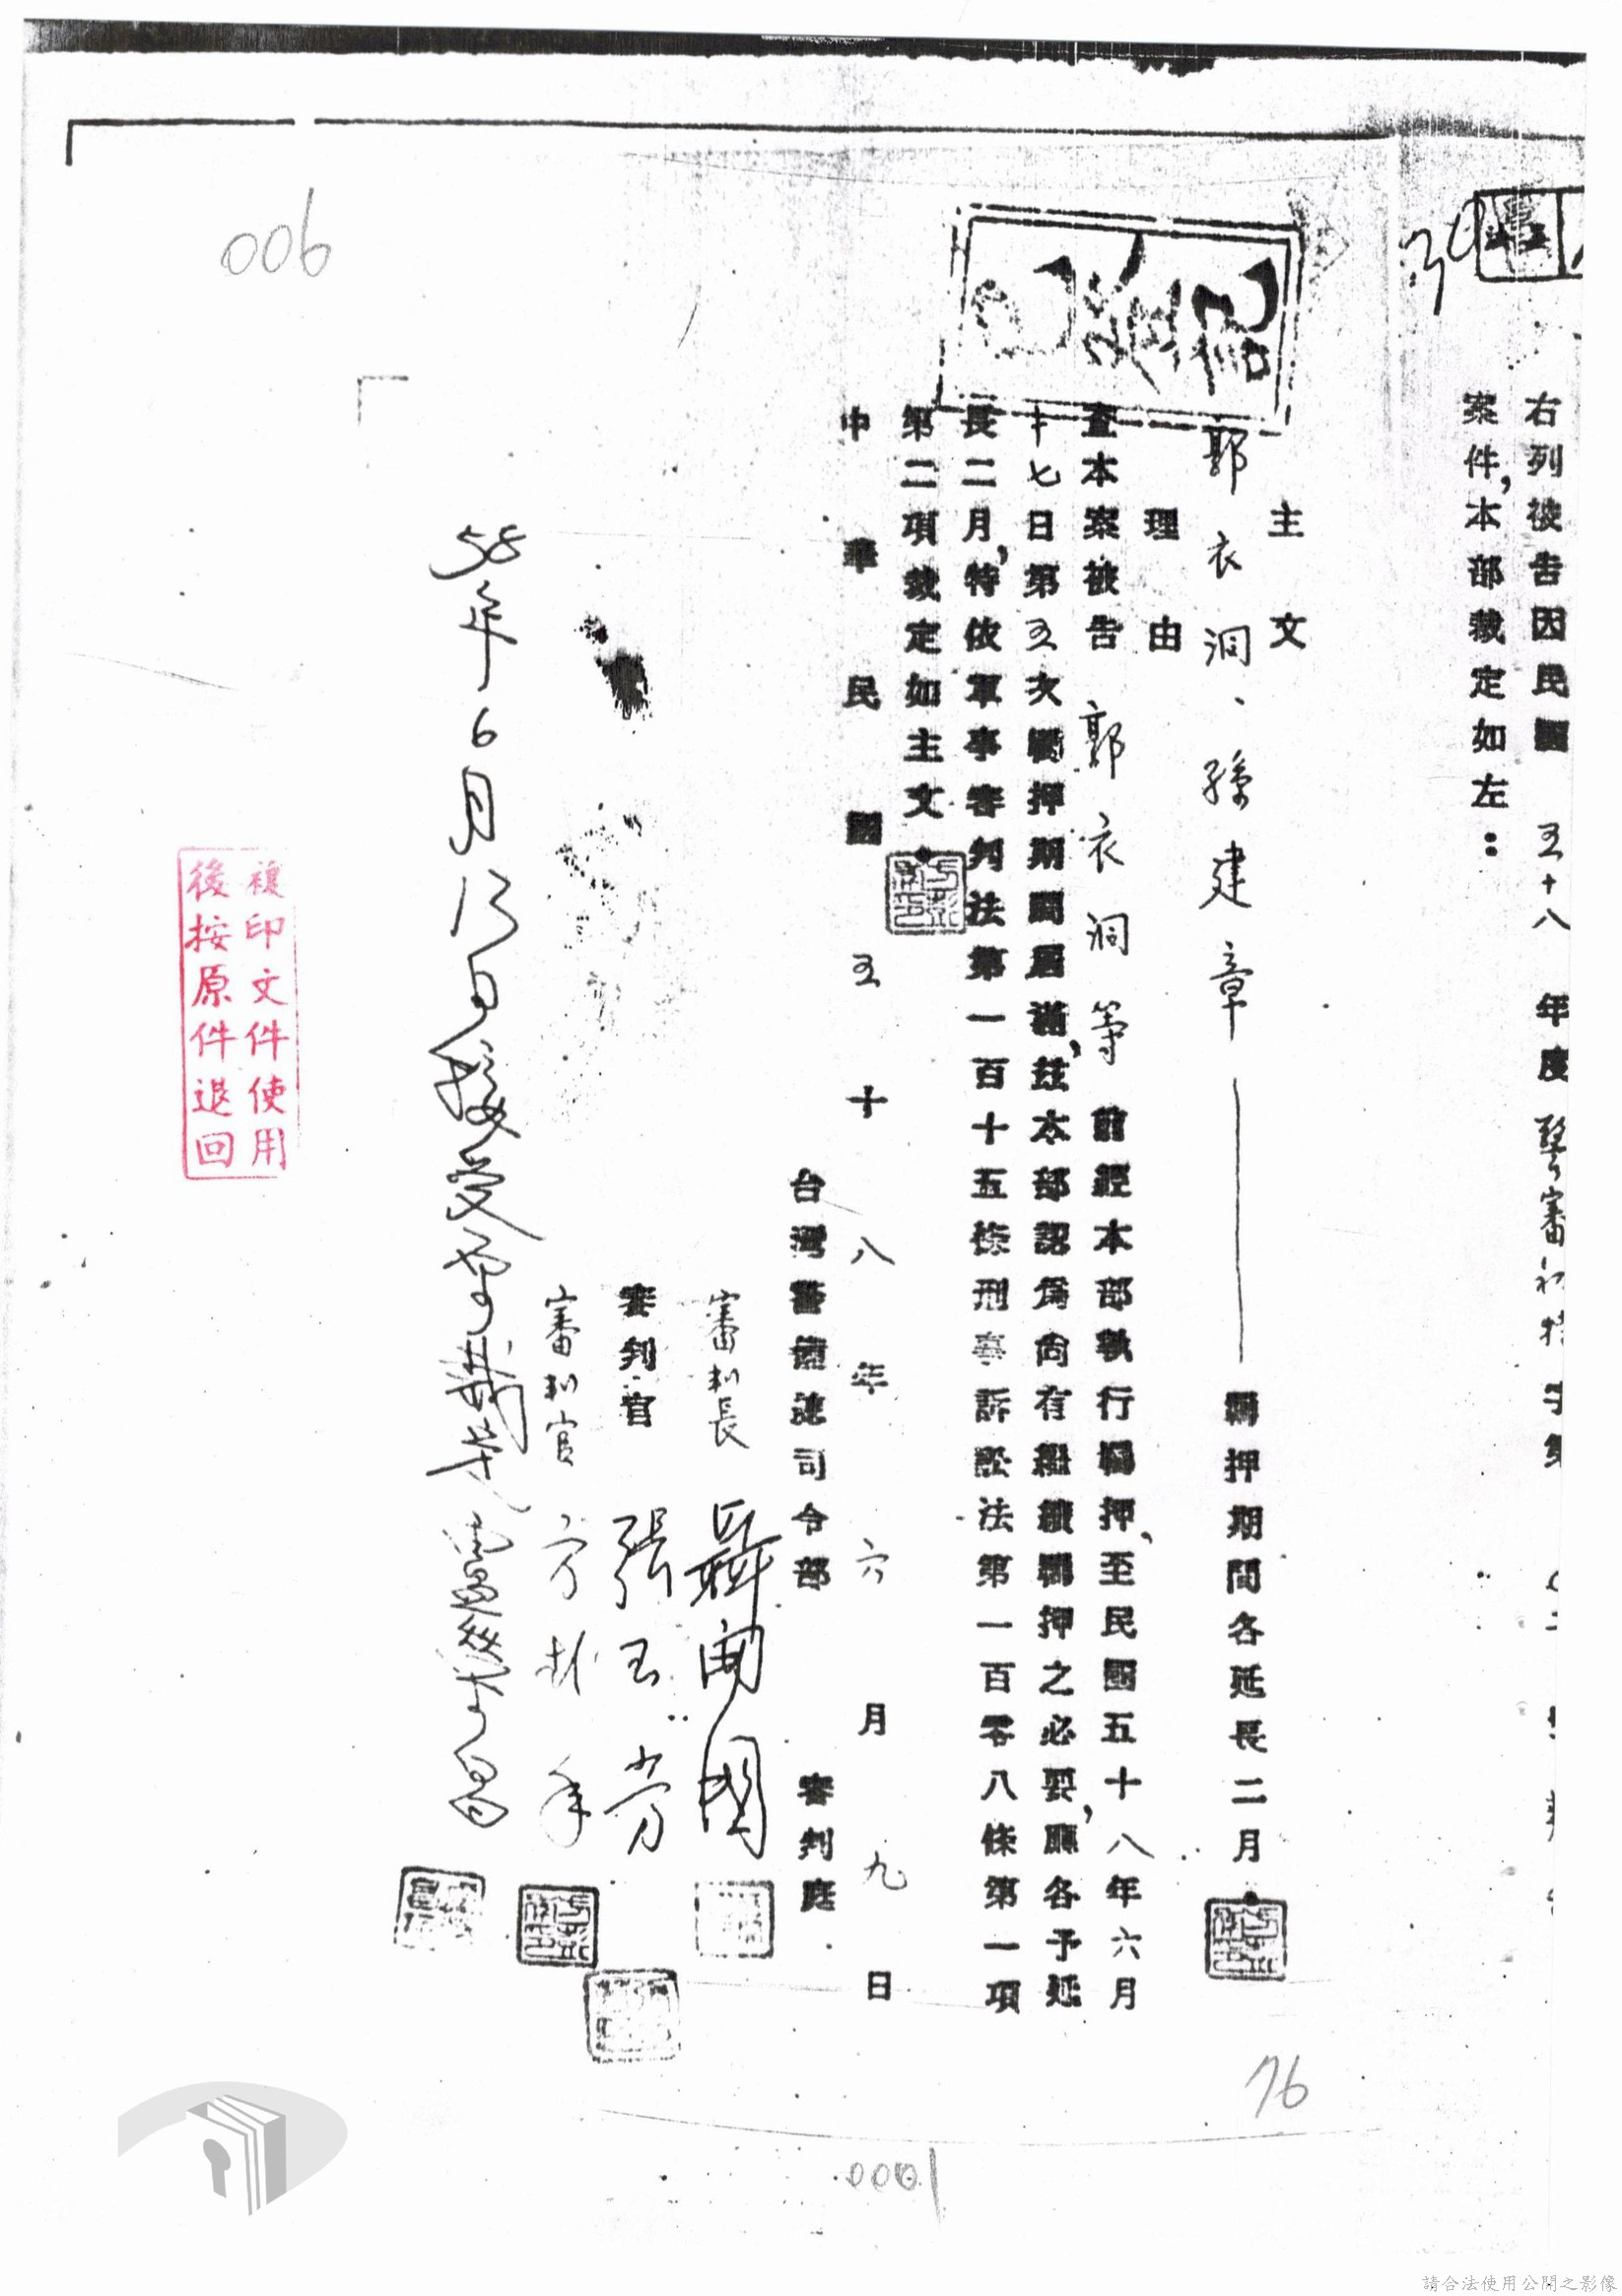 右列被告因民國五十八年度警審初特字第
案件，本部裁定如左：
主文
郭衣洞、孫建章 羈押期間各延長二月。
理由
查本案被告郭衣洞等前經本部執行羈押，至民國五十八年六月
十七日第五次羈押期間屆滿，茲本部認為尚有繼續羈押之必要，應各予延
長二月，特依軍事審判法第一百十五條刑事訴訟法第一百零八條第一項
第二項裁定如主文。
中華民國五十八年六月九日
台灣警備總司令部 審判庭
審判長 聶開國
審判官 張玉芳
審判官
58年6月13日
複印文件使用
後按原件退回
006
76
0001
請合法使用公開之影像